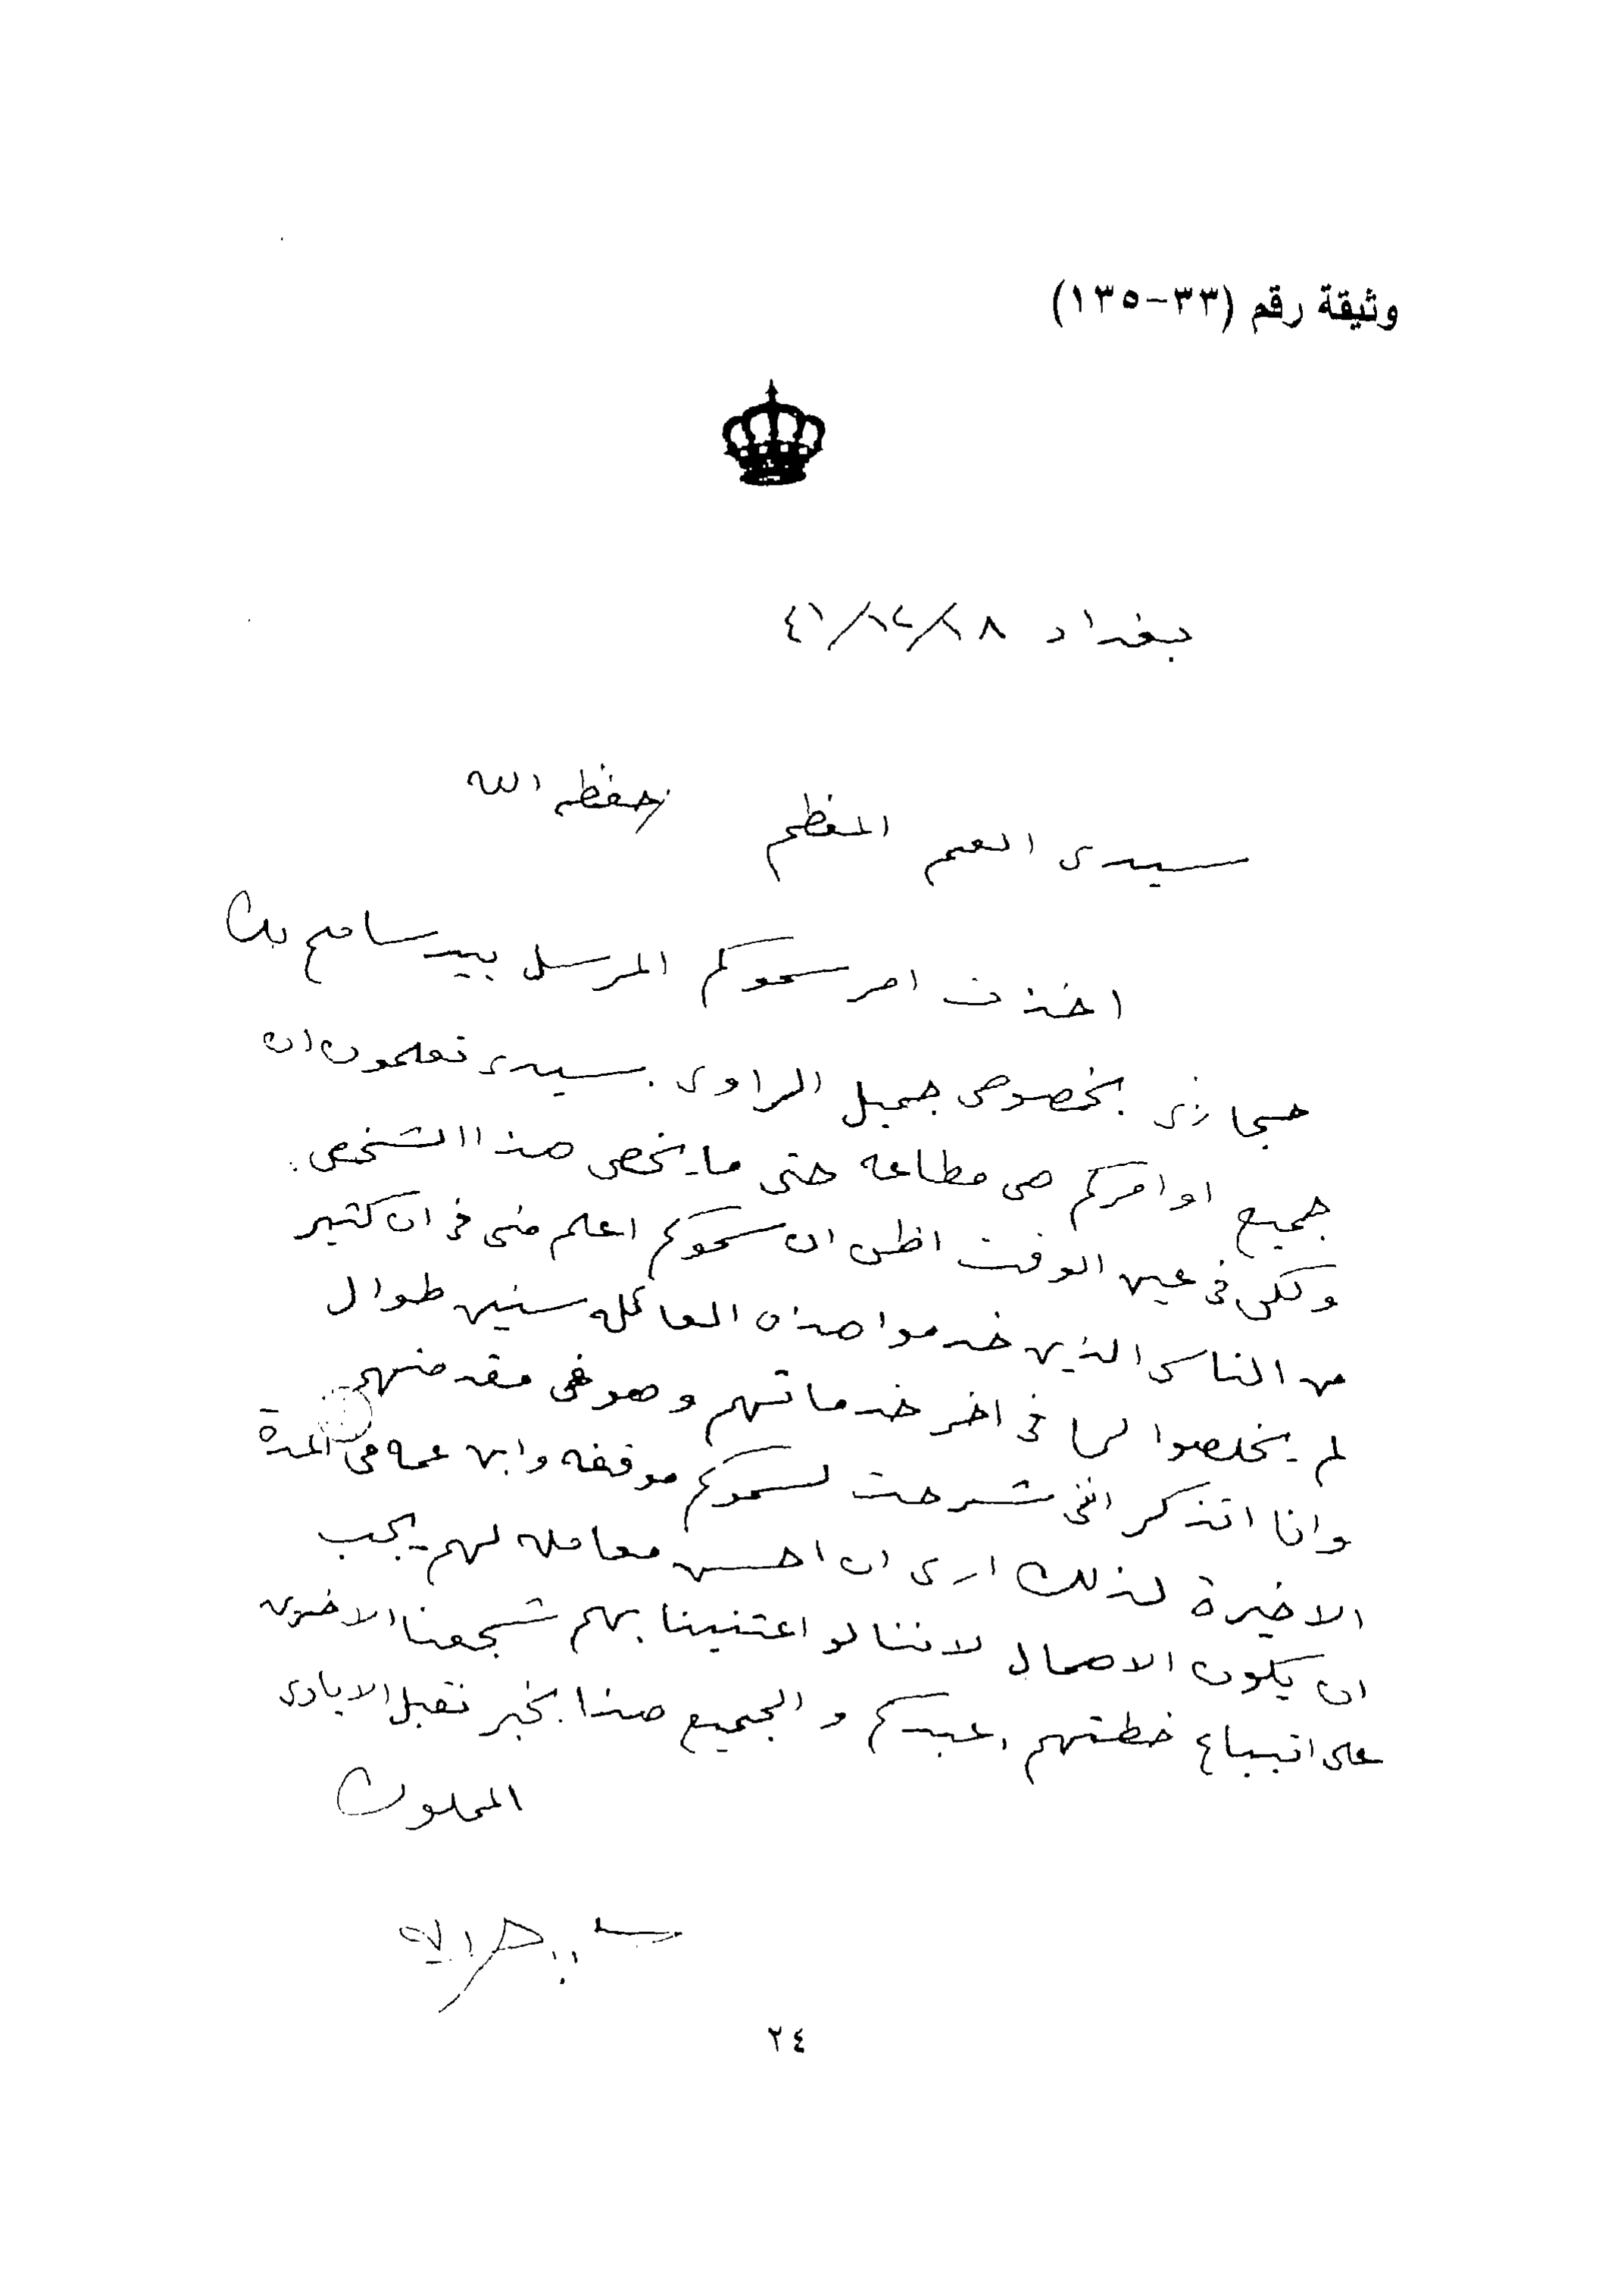 وثيقة رقم (٣٣-١٣٥)
بغداد ٢٨/١٢/٤١
سيدى العم المعظم حفظه الله
اخذت امر سموكم المرسل بيد سامح بك
حجازى بخصوص جميل الراوى. سيدى تعلمون ان
جميع اوامركم هى مطاعه حتى ما يخص هذا الشخص.
ولكن فى عين الوقت اظن ان سموكم اعلم منى فى ان كثير
من الناس الذين خدموا هذه العائله سنين طوال
لم يخلصوا لها فى اخر خدماتهم وهو فى مقدمتهم
وانا اتذكر اننى شرحت لسموكم موقفه وابن عمه فى المدة
الاخيرة لذلك ارى ان احسن معامله لهم يجب
ان يكون الاهمال لاننا لو اعتنينا بهم شجعنا الاخرين
على اتباع خطتهم، عبدكم والجميع هنا بخير نقبل الايادى
المملوك
٢٤